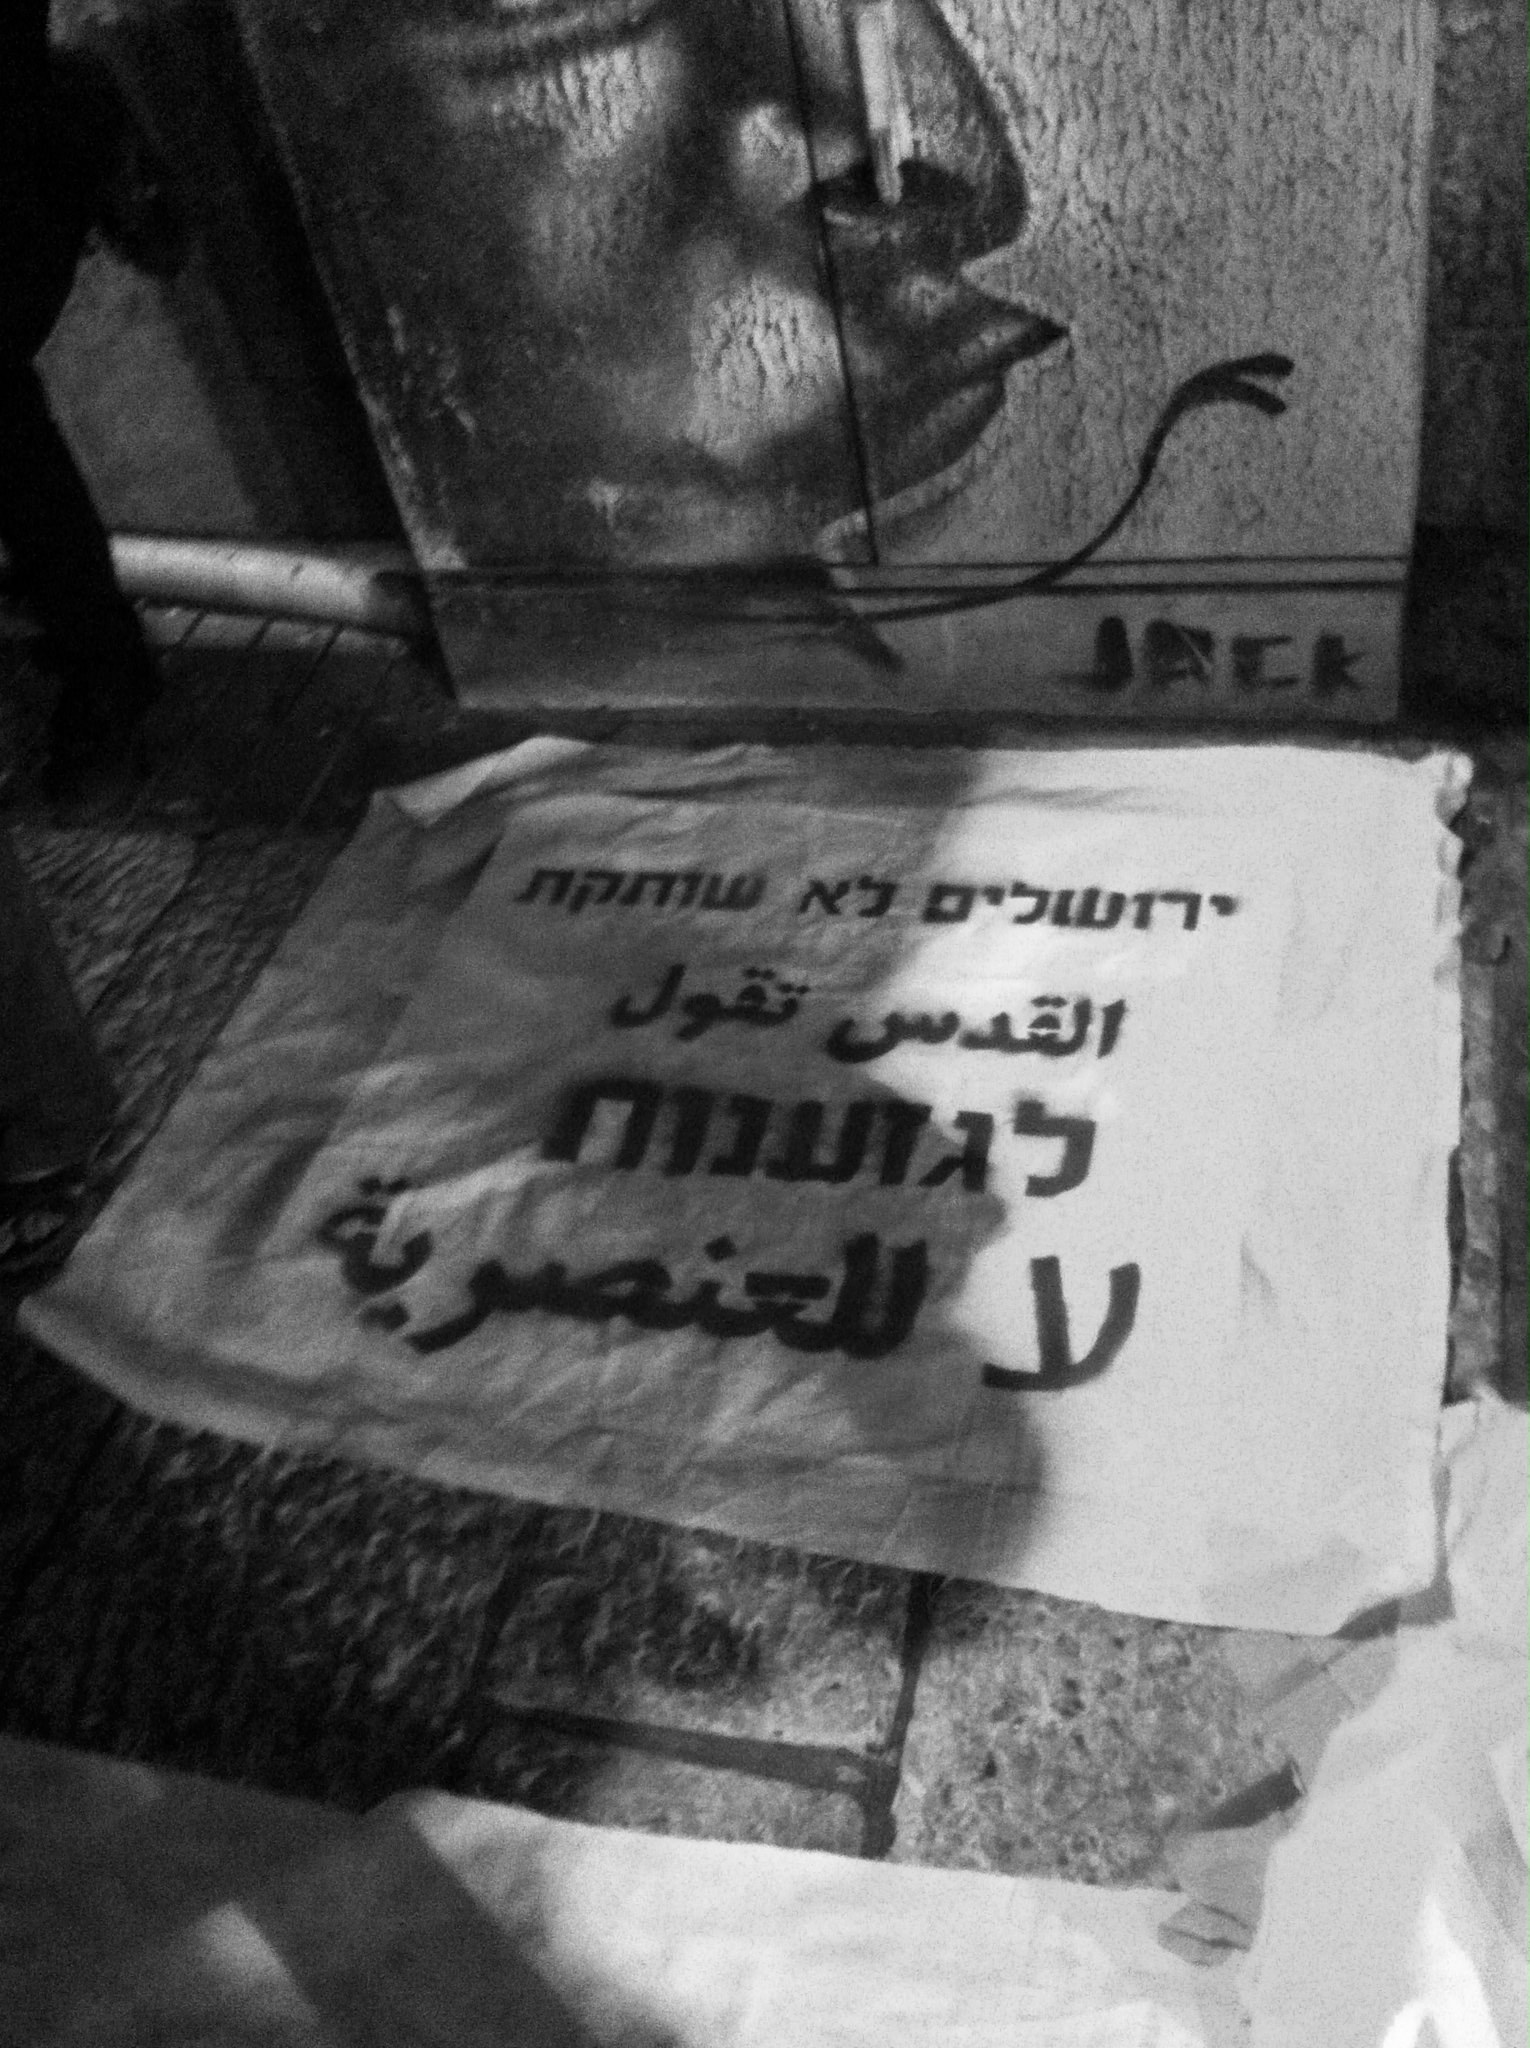 JACK
ירושלים לא שותקת
القدس تقول
לגזענות
لا للعنصرية